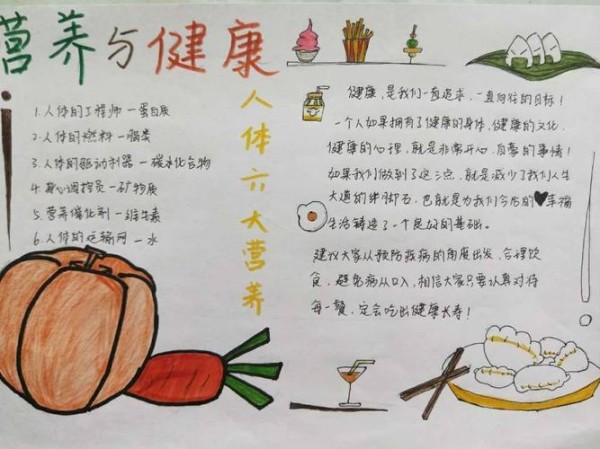 营养与健康
1.人体的工程师—蛋白质
2.人体的燃料—脂类
3.人体的驱动利器—碳水化合物
4.身心调控员—矿物质
5.营养催化剂—维生素
6.人体的运输网—水
人体六大营养
健康,是我们一直追求,一直向往的目标!
一个人如果拥有了健康的身体,健康的文化,
健康的心理,就是非常开心,自豪的事情!
如果我们做到了这三点,就是减少了我们人生
大道的绊脚石,也就是为我们今后的♥幸福
生活铸造了一个良好的基础。
建议大家从预防疾病的角度出发,合理饮
食,避免病从口入,相信大家只要认真对待
每一餐,定会吃出健康长寿!